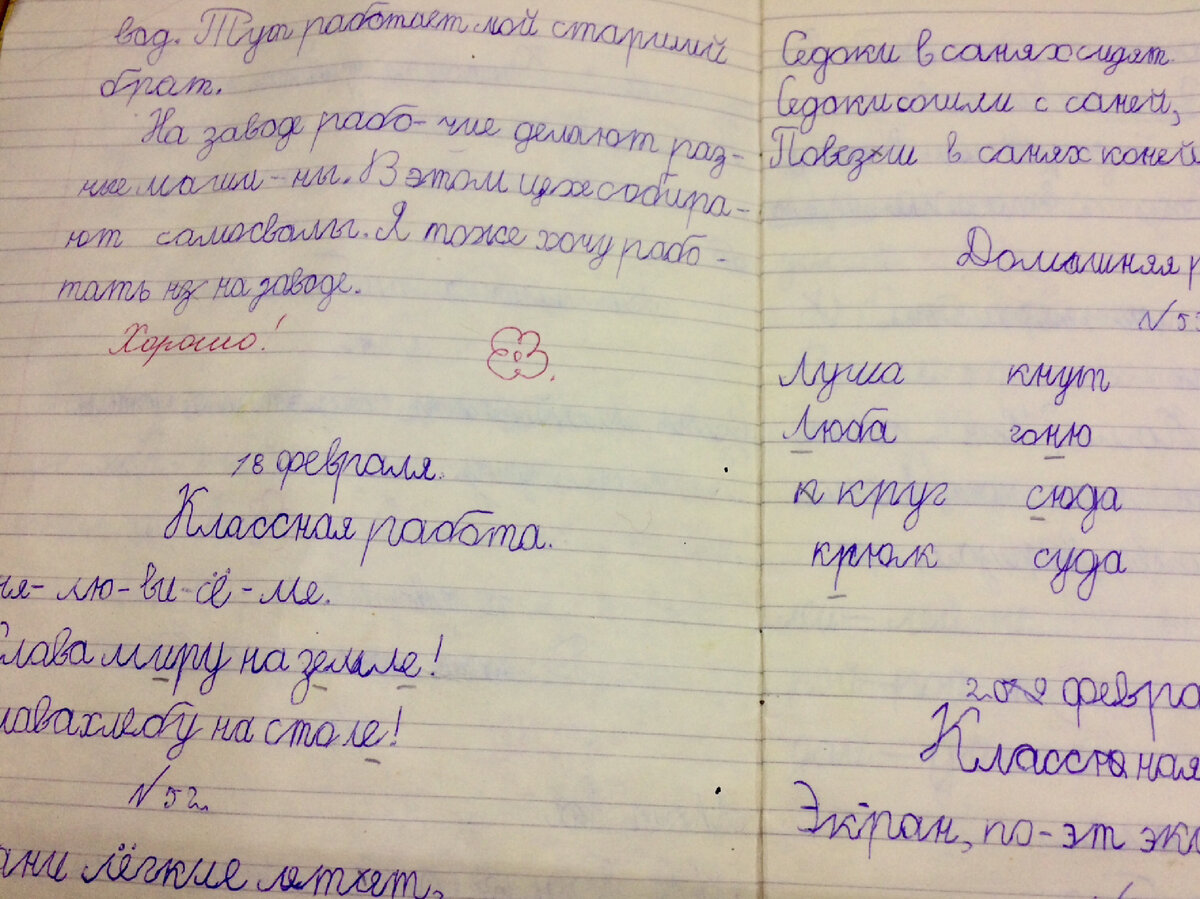 вод. Тут работает мой старший
брат.
На заводе рабо-чие делают раз-
ные маши-ны. В этом цехе собира-
ют самосвалы. Я тоже хочу рабо-
тать на заводе.
Хорошо!
18 февраля.
Классная работа.
ня-лю-ви-сё-мя.
Слава миру на земле!
лава хлебу на столе!
№52.
ани лёгкие летят,
Седоки в санях сидят.
Седоки сошли с саней,
Повезли в санях коней
Домашняя р
№53
Луша кнут
Люба гоню
к круг сюда
крюк суда
февра
Классная
Экран, по-эт эк